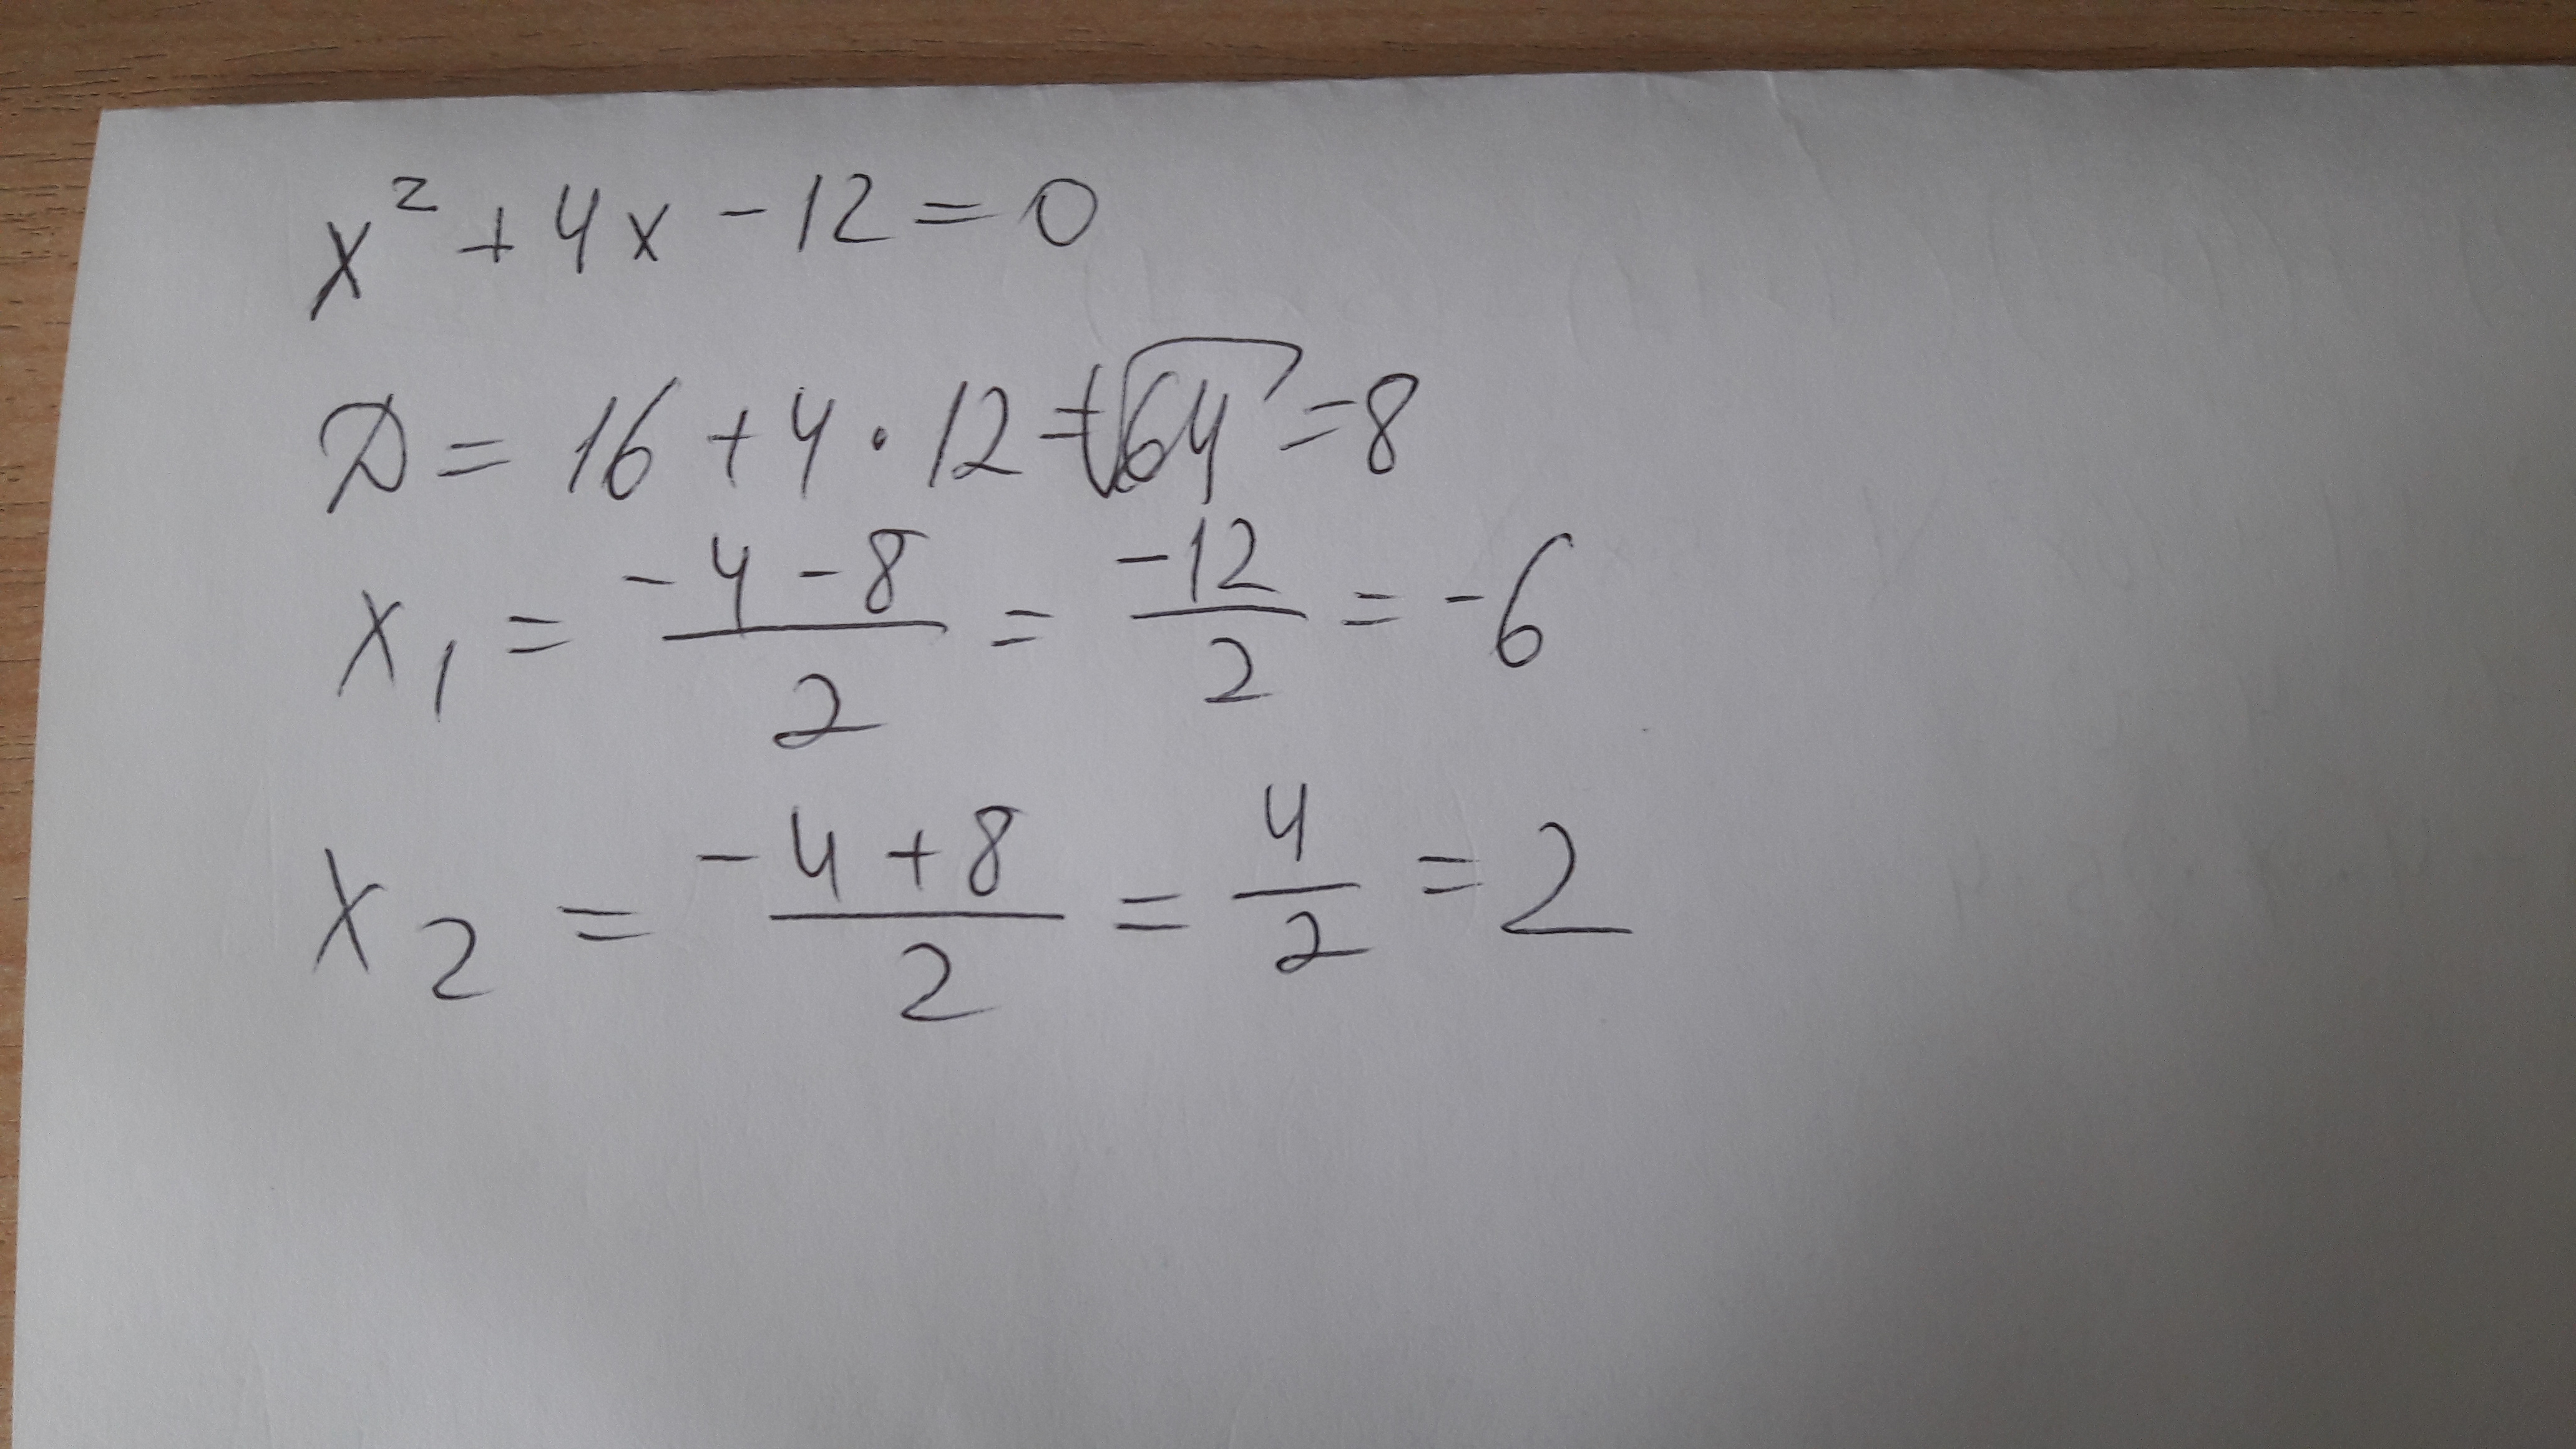 x² + 4x - 12 = 0
D = 16 + 4 · 12 = √64 = 8
x₁ = (-4 - 8)/2 = -12/2 = -6
x₂ = (-4 + 8)/2 = 4/2 = 2